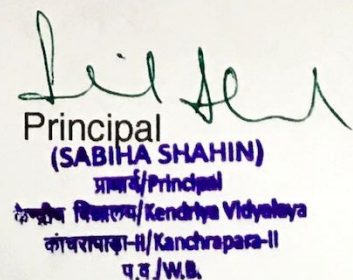 Principal
(SABIHA SHAHIN)
प्राचार्य/Principal
केन्द्रीय विद्यालय/Kendriya Vidyalaya
कांचरापाड़ा-II/Kanchrapara-II
प.व./W.B.